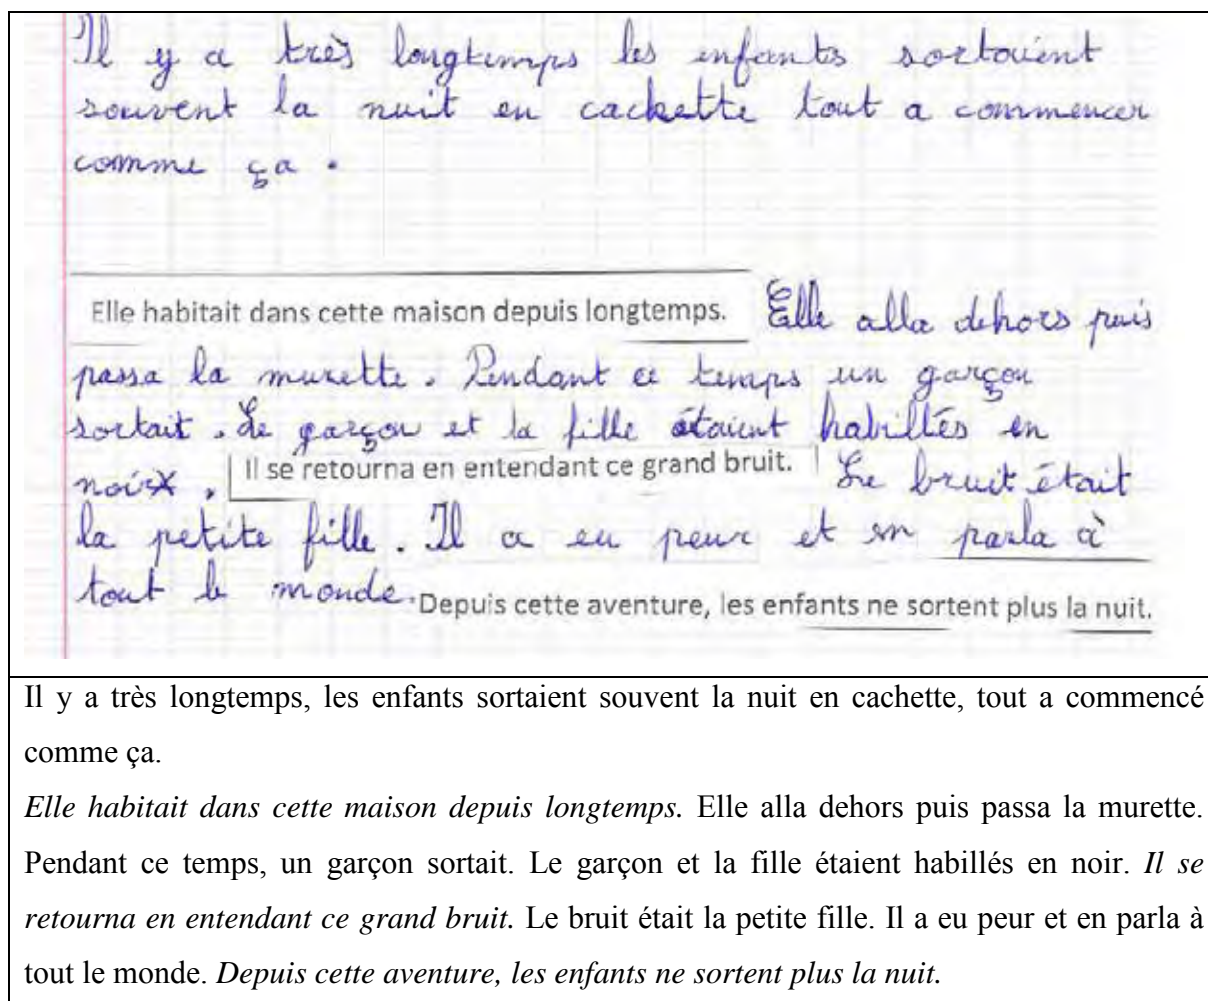 Il y a très longtemps les enfants sortaient
souvent la nuit en cachette tout a commencer
comme ça.
Elle habitait dans cette maison depuis longtemps. Elle alla dehors puis
passa la murette. Pendant ce temps un garçon
sortait. Le garçon et la fille étaient habillés en
noir. Il se retourna en entendant ce grand bruit. Le bruit était
la petite fille. Il a eu peur et en parla à
tout le monde. Depuis cette aventure, les enfants ne sortent plus la nuit.
Il y a très longtemps, les enfants sortaient souvent la nuit en cachette, tout a commencé
comme ça.
Elle habitait dans cette maison depuis longtemps. Elle alla dehors puis passa la murette.
Pendant ce temps, un garçon sortait. Le garçon et la fille étaient habillés en noir. Il se
retourna en entendant ce grand bruit. Le bruit était la petite fille. Il a eu peur et en parla à
tout le monde. Depuis cette aventure, les enfants ne sortent plus la nuit.